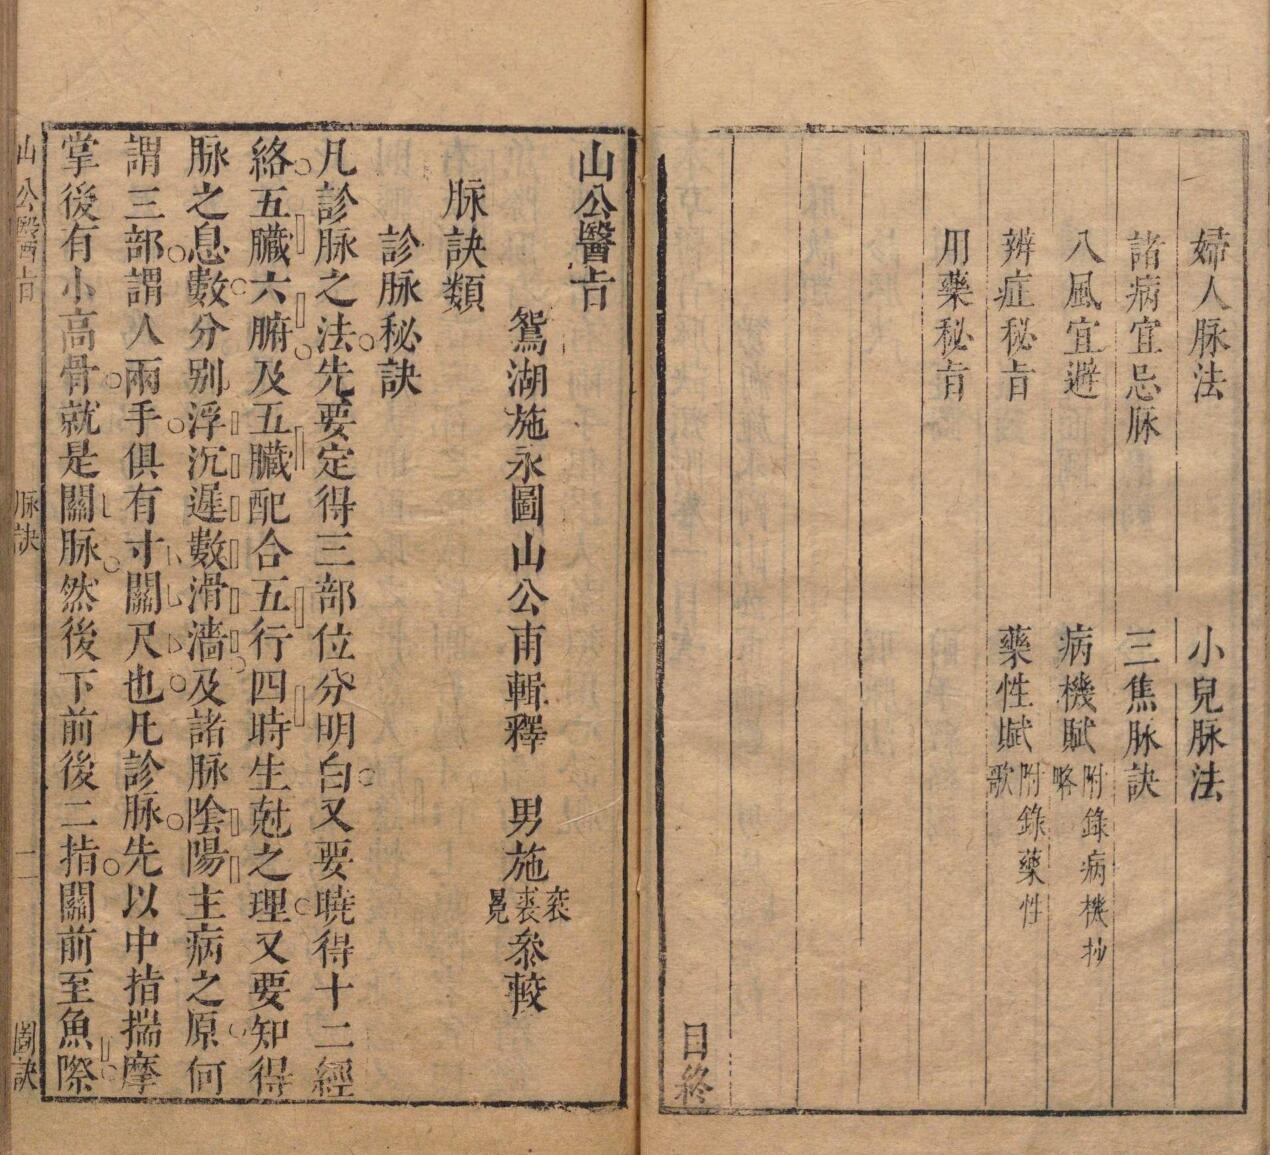 婦人脉法 小兒脉法
諸病宜忌脉 三焦脉訣
八風宜避 病機賦 附錄病機抄略
辨症秘旨 藥性賦 附錄藥性歌
用藥秘旨
目終
山公醫旨
鴛湖施永圖山公甫輯釋 男施 衮裘晃 叅較
脉訣類
診脉秘訣
凡診脉之法先要定得三部位分明白又要曉得十二經
絡五臟六腑及五臟配合五行四時生尅之理又要知得
脉之息數分别浮沉遲數滑濇及諸脉陰陽主病之原何
謂三部謂人兩手俱有寸關尺也凡診脉先以中指揣摩
掌後有小高骨就是關脉然後下前後二指關前至魚際
山公醫旨 脉訣 二 圖訣